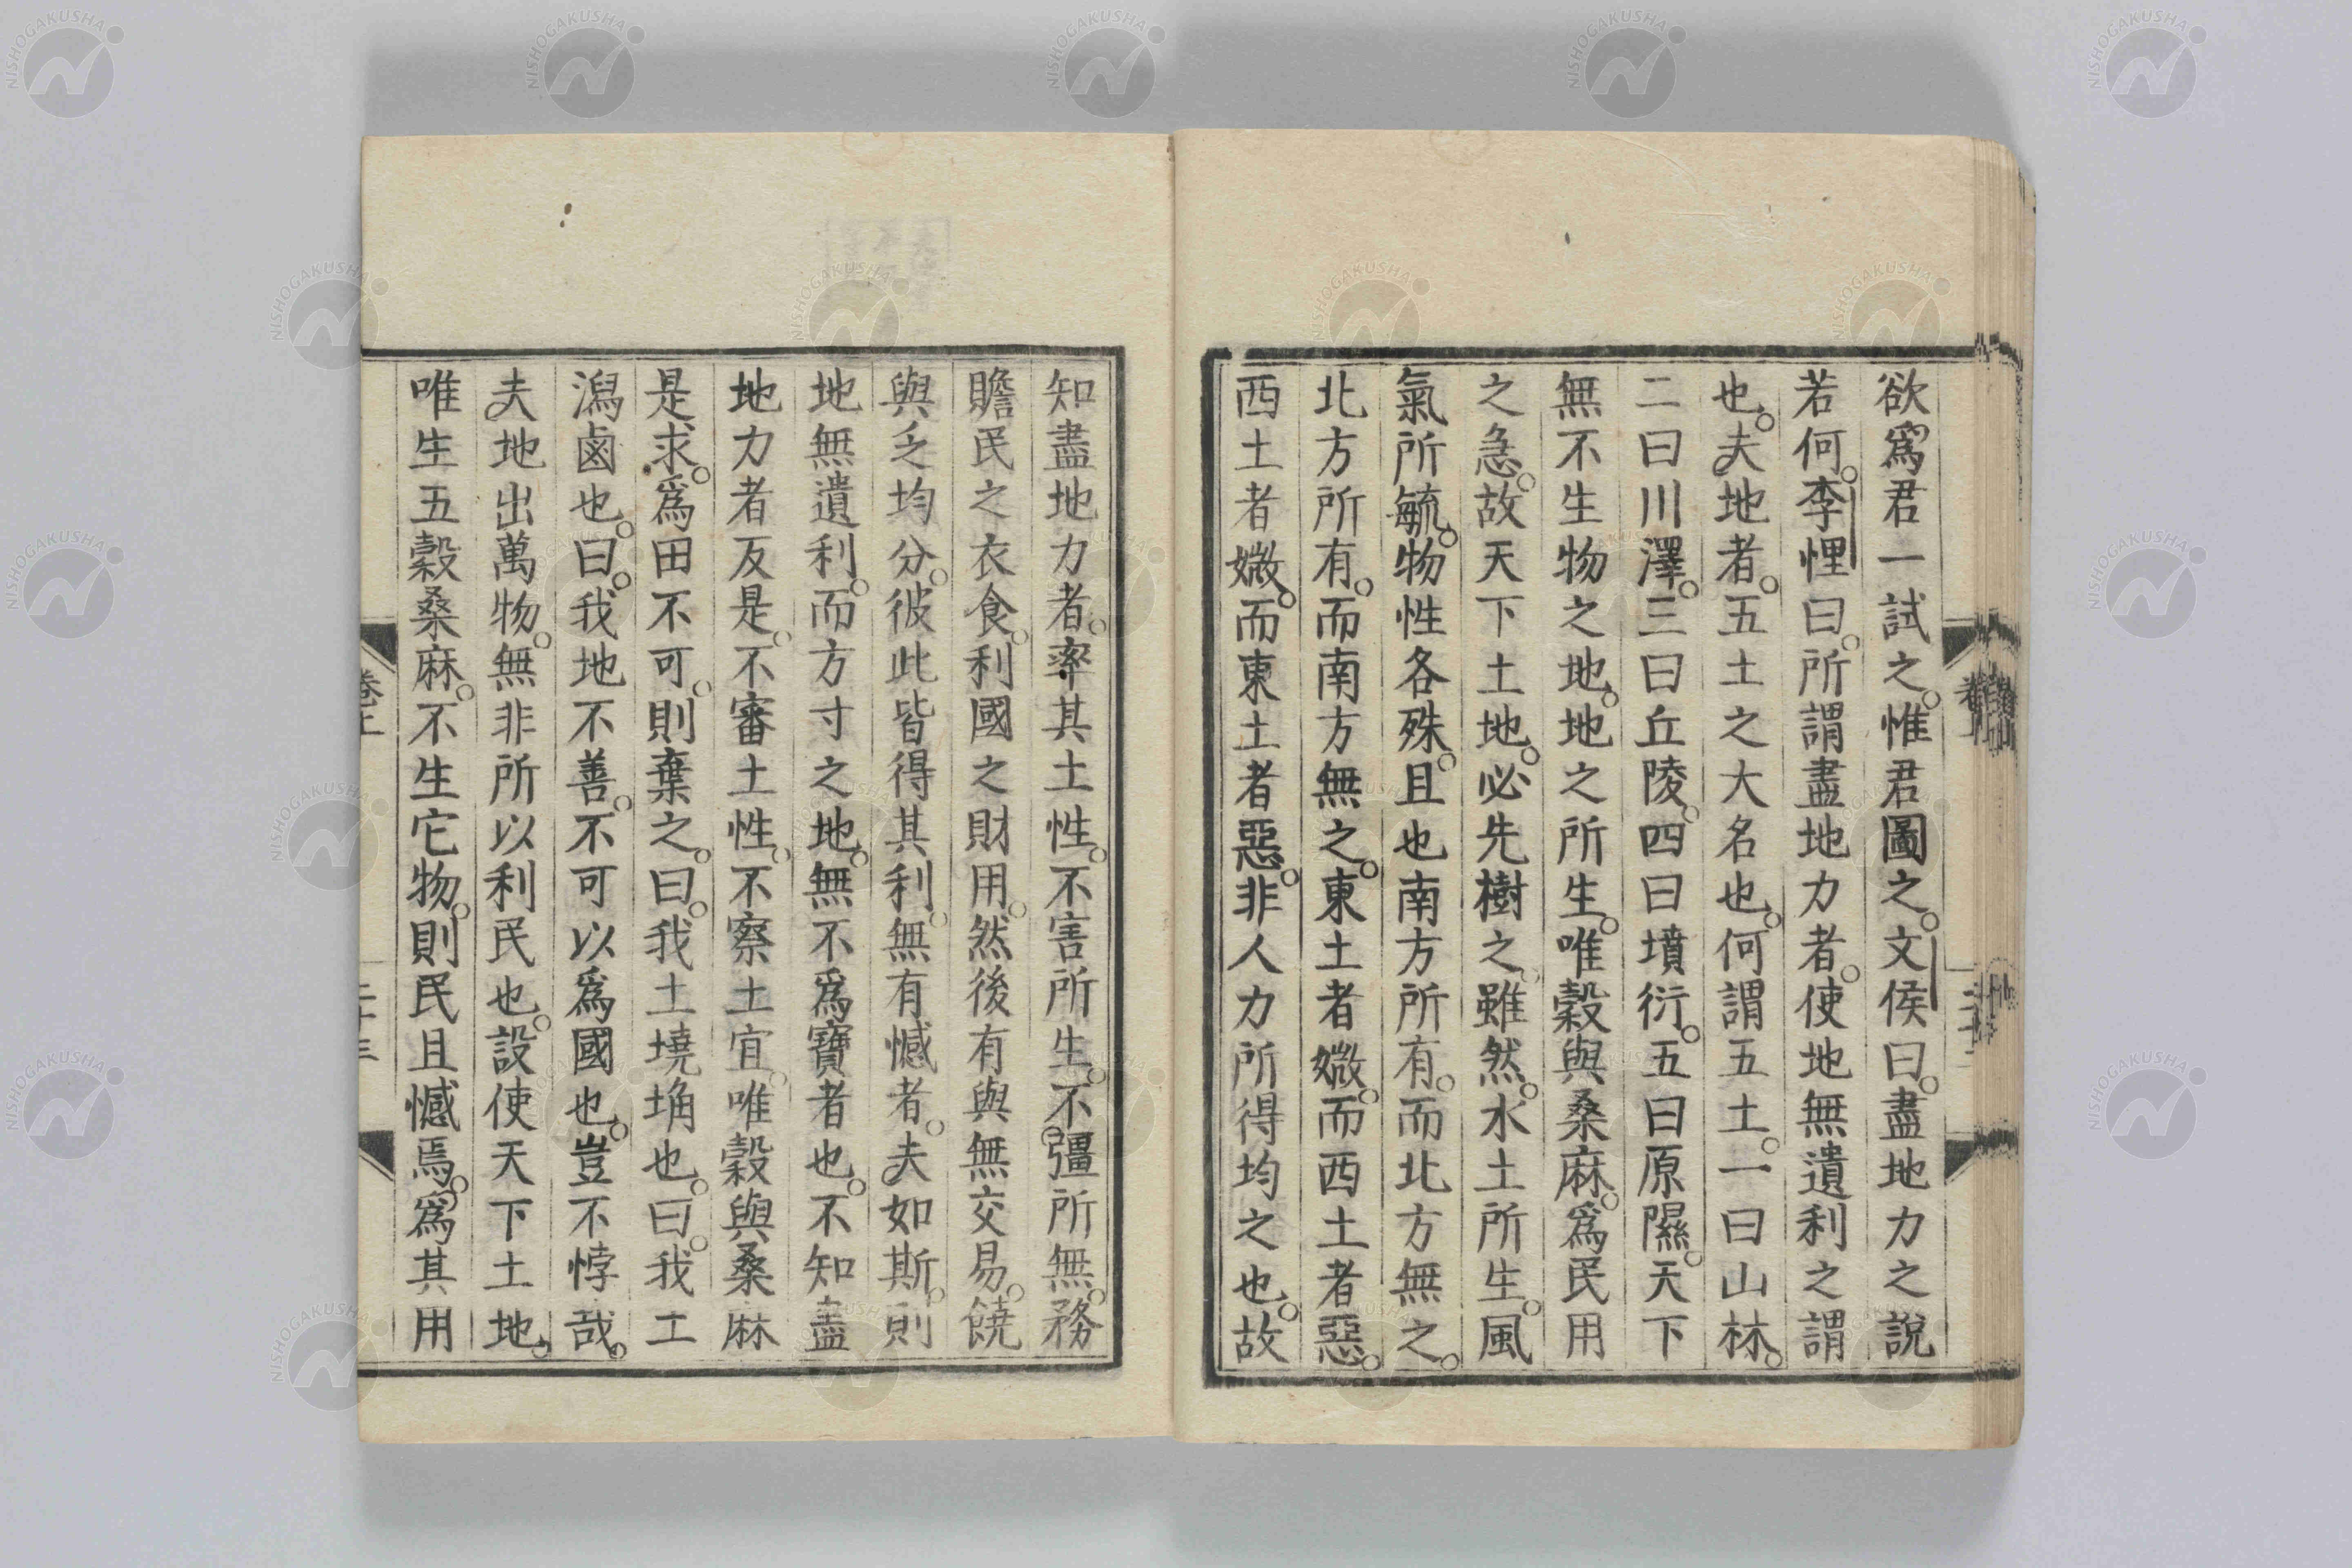 欲爲君一試之。惟君圖之。文侯曰。盡地力之說
若何。李悝曰。所謂盡地力者。使地無遺利之謂
也。夫地者。五土之大名也。何謂五土。一曰山林。
二曰川澤。三曰丘陵。四曰墳衍。五曰原隰。天下
無不生物之地。地之所生。唯穀與桑麻。爲民用
之急。故天下土地。必先樹之。雖然。水土所生。風
氣所毓。物性各殊。且也南方所有。而北方無之。
北方所有。而南方無之。東土者媺。而西土者惡。
西土者媺。而東土者惡。非人力所得均之也。故
知盡地力者。率其土性。不害所生。不彊所無。務
贍民之衣食。利國之財用。然後有與無交易。饒
與乏均分。彼此皆得其利。無有憾者。夫如斯。則
地無遺利。而方寸之地。無不爲寶者也。不知盡
地力者反是。不審土性。不察土宜。唯穀與桑麻
是求。爲田不可。則棄之。曰。我土墝埆也。曰。我土
潟鹵也。曰。我地不善。不可以爲國也。豈不悖哉。
夫地出萬物。無非所以利民也。設使天下土地。
唯生五穀桑麻。不生它物。則民且憾焉。爲其用
卷上
二十三